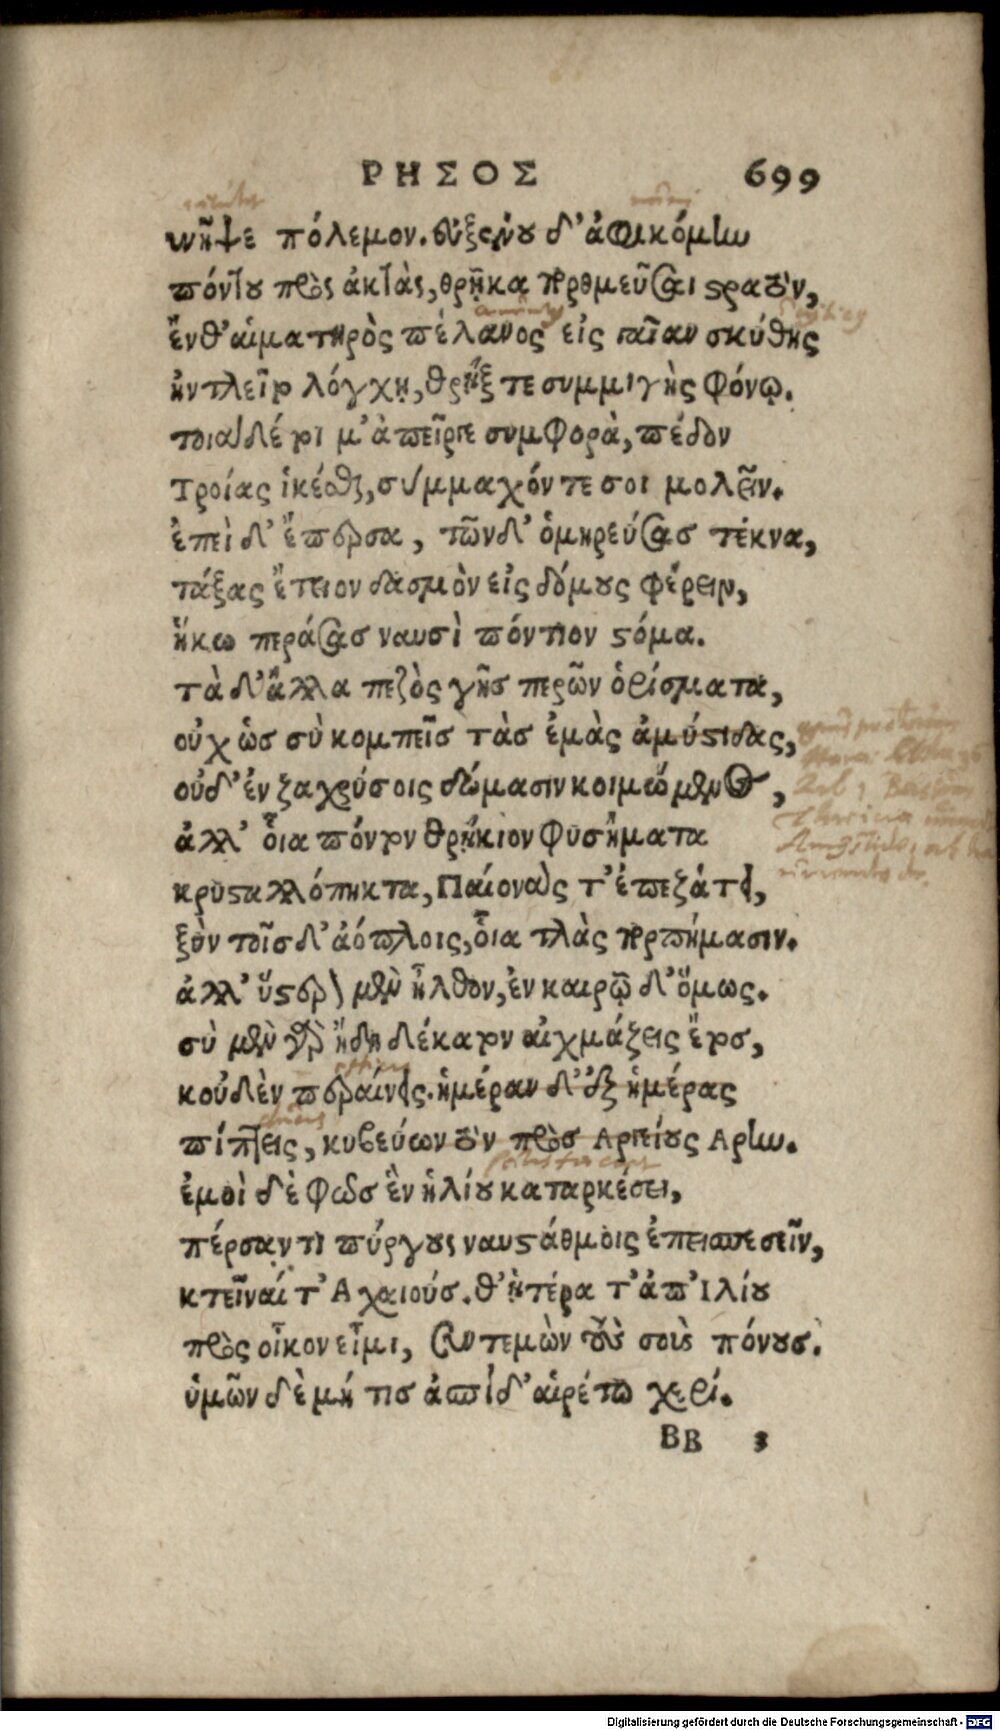 ΡΗΣΟΣ 699
νῆψε πόλεμον. εὐξείνου δ' ἀφικόμην
πόντου πρὸς ἀκτὰς, θρῄκα πορθμεύσαι στρατὸν,
ἔνθ' αἱματηρὸς πέλανος εἰς γαῖαν σκύθης
ἠντλεῖτο λόγχῃ, θρήξ τε συμμιγὴς φόνῳ.
τοιάδέ τοί μ' ἀπεῖργε συμφορὰ, πέδον
Τροίας ἱκέσθαι, σύμμαχόν τε σοι μολεῖν.
ἐπεὶ δ' ἔπερσα, τῶνδ' ὁμηρεύσας τέκνα,
τάξας ἔτειον δασμὸν εἰς δόμους φέρειν,
ἥκω περάσας ναυσὶ πόντιον στόμα.
τὰ δ' ἄλλα πεζὸς γῆς περῶν ὁρίσματα,
οὐχ ὡς σὺ κομπεῖς τὰς ἐμὰς ἀμύστιδας,
οὐδ' ἐν ζαχρύσοις δώμασιν κοιμώμενος,
ἀλλ' οἷα πόντον θρῄκιον φυσήματα
κρυσταλλόπηκτα, Παίονας τ' ἐπεζάτει,
ξὺν τοῖσδ' ἀόπλοις, οἷα τλὰς πορπήμασιν.
ἀλλ' ὕστερος μὲν ἦλθον, ἐν καιρῷ δ' ὅμως.
σὺ μὲν γὰρ ἤδη δέκατον αἰχμάζεις ἔτος,
κοὐδὲν περαίνεις. ἡμέραν δ' ἐξ ἡμέρας
πίπτεις, κυβεύων τὸν πρὸς Αργείους Αρην.
ἐμοὶ δὲ φῶς ἓν ἡλίου καταρκέσει,
πέρσαντι πύργους ναυστάθμοις ἐπεισπεσεῖν,
κτεῖναί τ' Αχαιούς. θ' ἠτέρα τ' ἀπ' Ιλίου
πρὸς οἶκον εἶμι, συντεμὼν τοὺς σοὺς πόνους.
ὑμῶν δὲ μή τις ἀσπίδ' αἱρέτω χερί.
BB 3
Digitalisierung gefördert durch die Deutsche Forschungsgemeinschaft - DFG